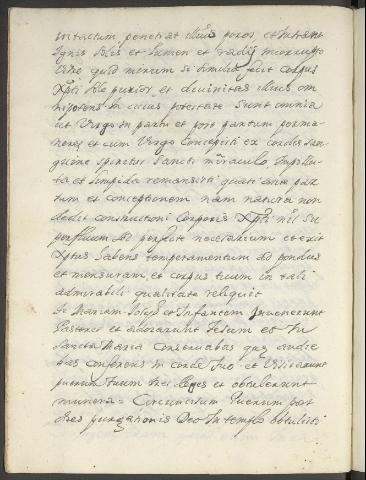 intactum penetrat illius poros et intrant
ignis solis et lumen et radij incorrupto
vitre quid mirum si similia fecit corpus
Xpti sole purior et divinitas illius om
nipotens in cuius potestate sunt omnia
ut Virgo in partu et post partum perma
neres et cum Virgo concepisti ex cordis san
guine spiritus sancti miraculo impollu
ta et limpida remansisti quasi ante par
tum et conceptionem nam natura non
dedit constructioni corporis Xpti nil su
perfluum sed perfecte necessarium et exit
Xptus habens temperamentum ad pondus
et mensuram et corpus tuum in tali
admirabili qualitate reliquit
Mariam Joseph et Infantem invenerunt
Pastores et adorarunt Jesum et tu
Sancta Maria conservabas que audie
bas conferens in corde tuo et visitarunt
puerum tuum tres Reges et obtulerunt
munera = Circumcisum Puerum post
dies purgationis Deo in templo obtulisti